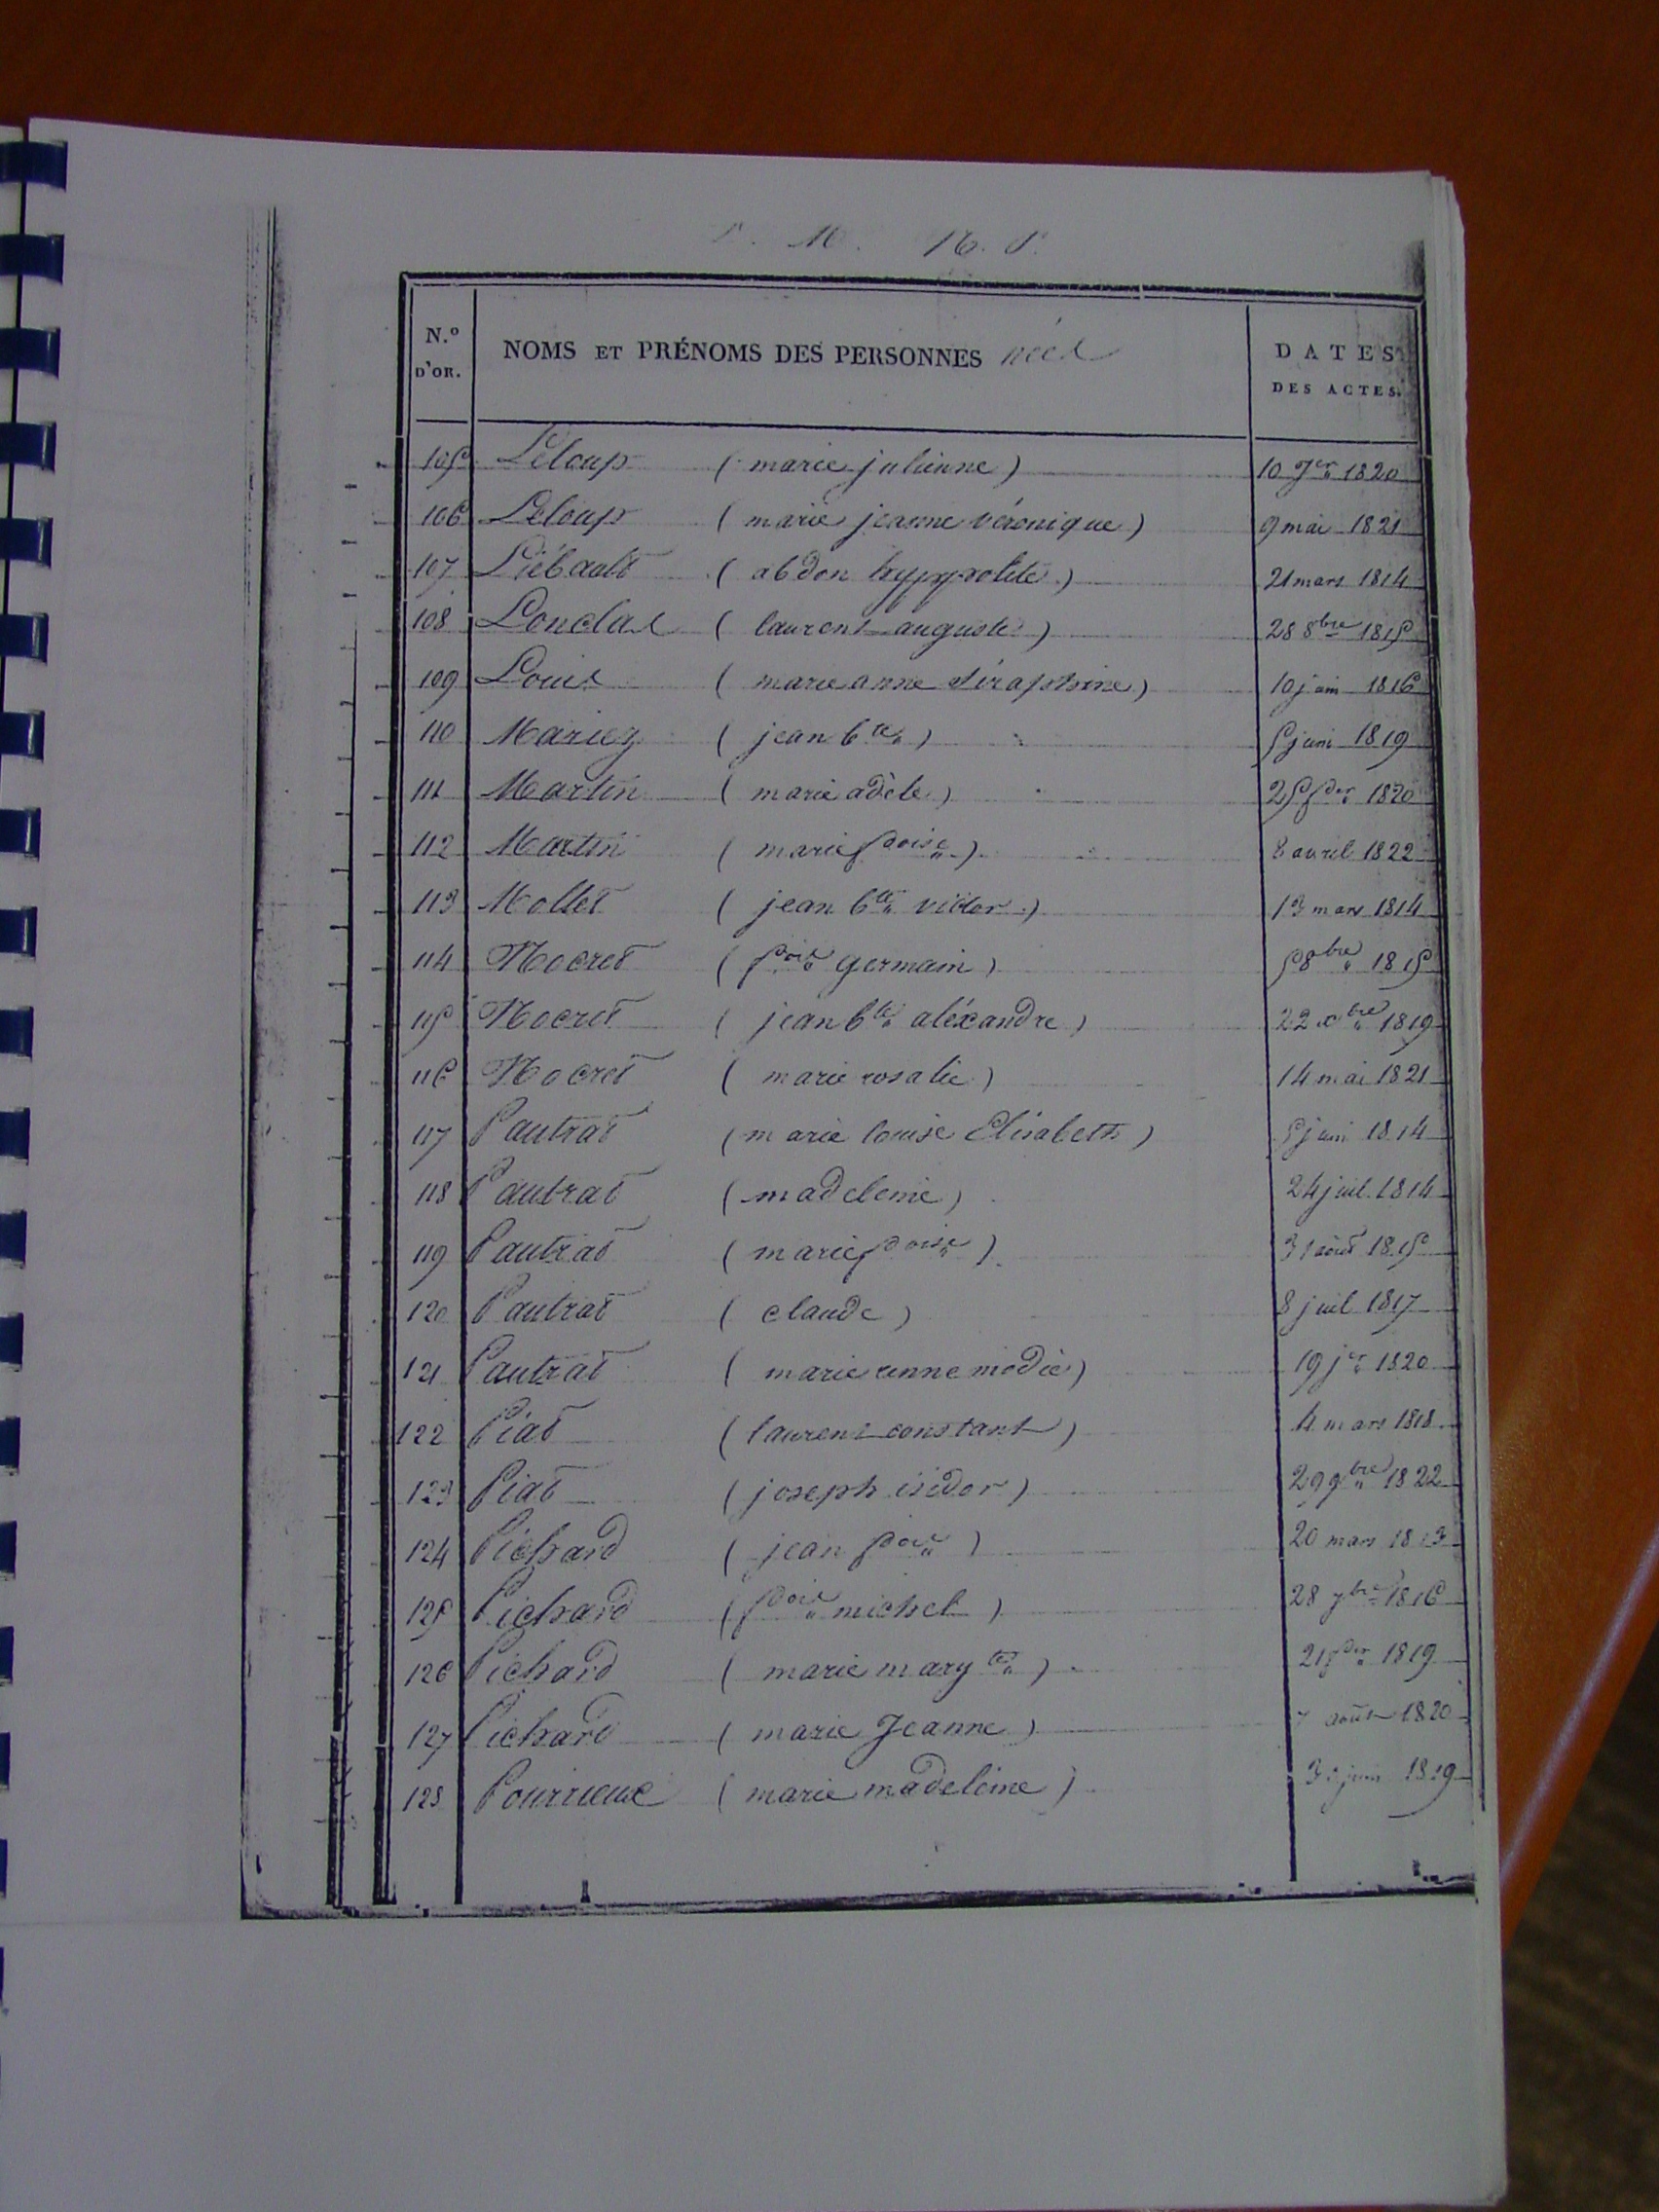 M. N. P.
N.º D'OR. NOMS ET PRÉNOMS DES PERSONNES nées DATES DES ACTES.
105 Leloup (marie julienne) 10 Jer 1820
106 Leloup (marie jeanne véronique) 9 mai 1821
107 Liébault (abdon hyppolite) 21 mars 1814
108 Londas (laurent auguste) 28 8bre 1815
109 Louis (marie anne séraphine) 10 juin 1816
110 Mariez (jean bte) 5 juin 1819
111 Martin (marie adèle) 25 fder 1820
112 Martin (marie foise) 8 avril 1822
113 Mollet (jean bte victor) 13 mars 1814
114 Nocret (fois germain) 5 8bre 1815
115 Nocret (jean bte aléxandre) 22 xbre 1819
116 Nocret (marie rosalie) 14 mai 1821
117 Pautrat (marie louise Elisabeth) 5 juin 1814
118 Pautrat (madeleine) 24 juil. 1814
119 Pautrat (marie foise) 31 août 1815
120 Pautrat (claude) 8 juil 1817
121 Pautrat (marie anne) 19 jer 1820
122 Piat (laurent constant) 4 mars 1818
123 Piat (joseph isidor) 29 9bre 1822
124 Pichard (jean fois) 20 mars 1813
125 Pichard (fois michel) 28 7bre 1816
126 Pichard (marie margte) 21 fder 1819
127 Pichard (marie Jeanne) 7 août 1820
128 (marie madeleine) juin 1819